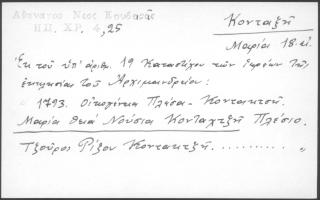 Αθανατος Νεος Κουβαρᾶς
ΗΠ. ΧΡ. 4, 25
Κονταξῆ
Μαρία 18. αἰ.
Ἐκ τοῦ ὑπ' ἀριθ. 19 Καταστίχου τῶν ἱερέων τῆς
ἐκκλησίας τοῦ Ἀρχιμανδρείου:
1793. Οἰκογένεια Πλέσα - Κοντακτσῆ.
Μαρία θειά Νούσια Κονταχτζῆ Πλέσιο.
Τζούρος Ρίζου Κοντακτζῆ. .......... "